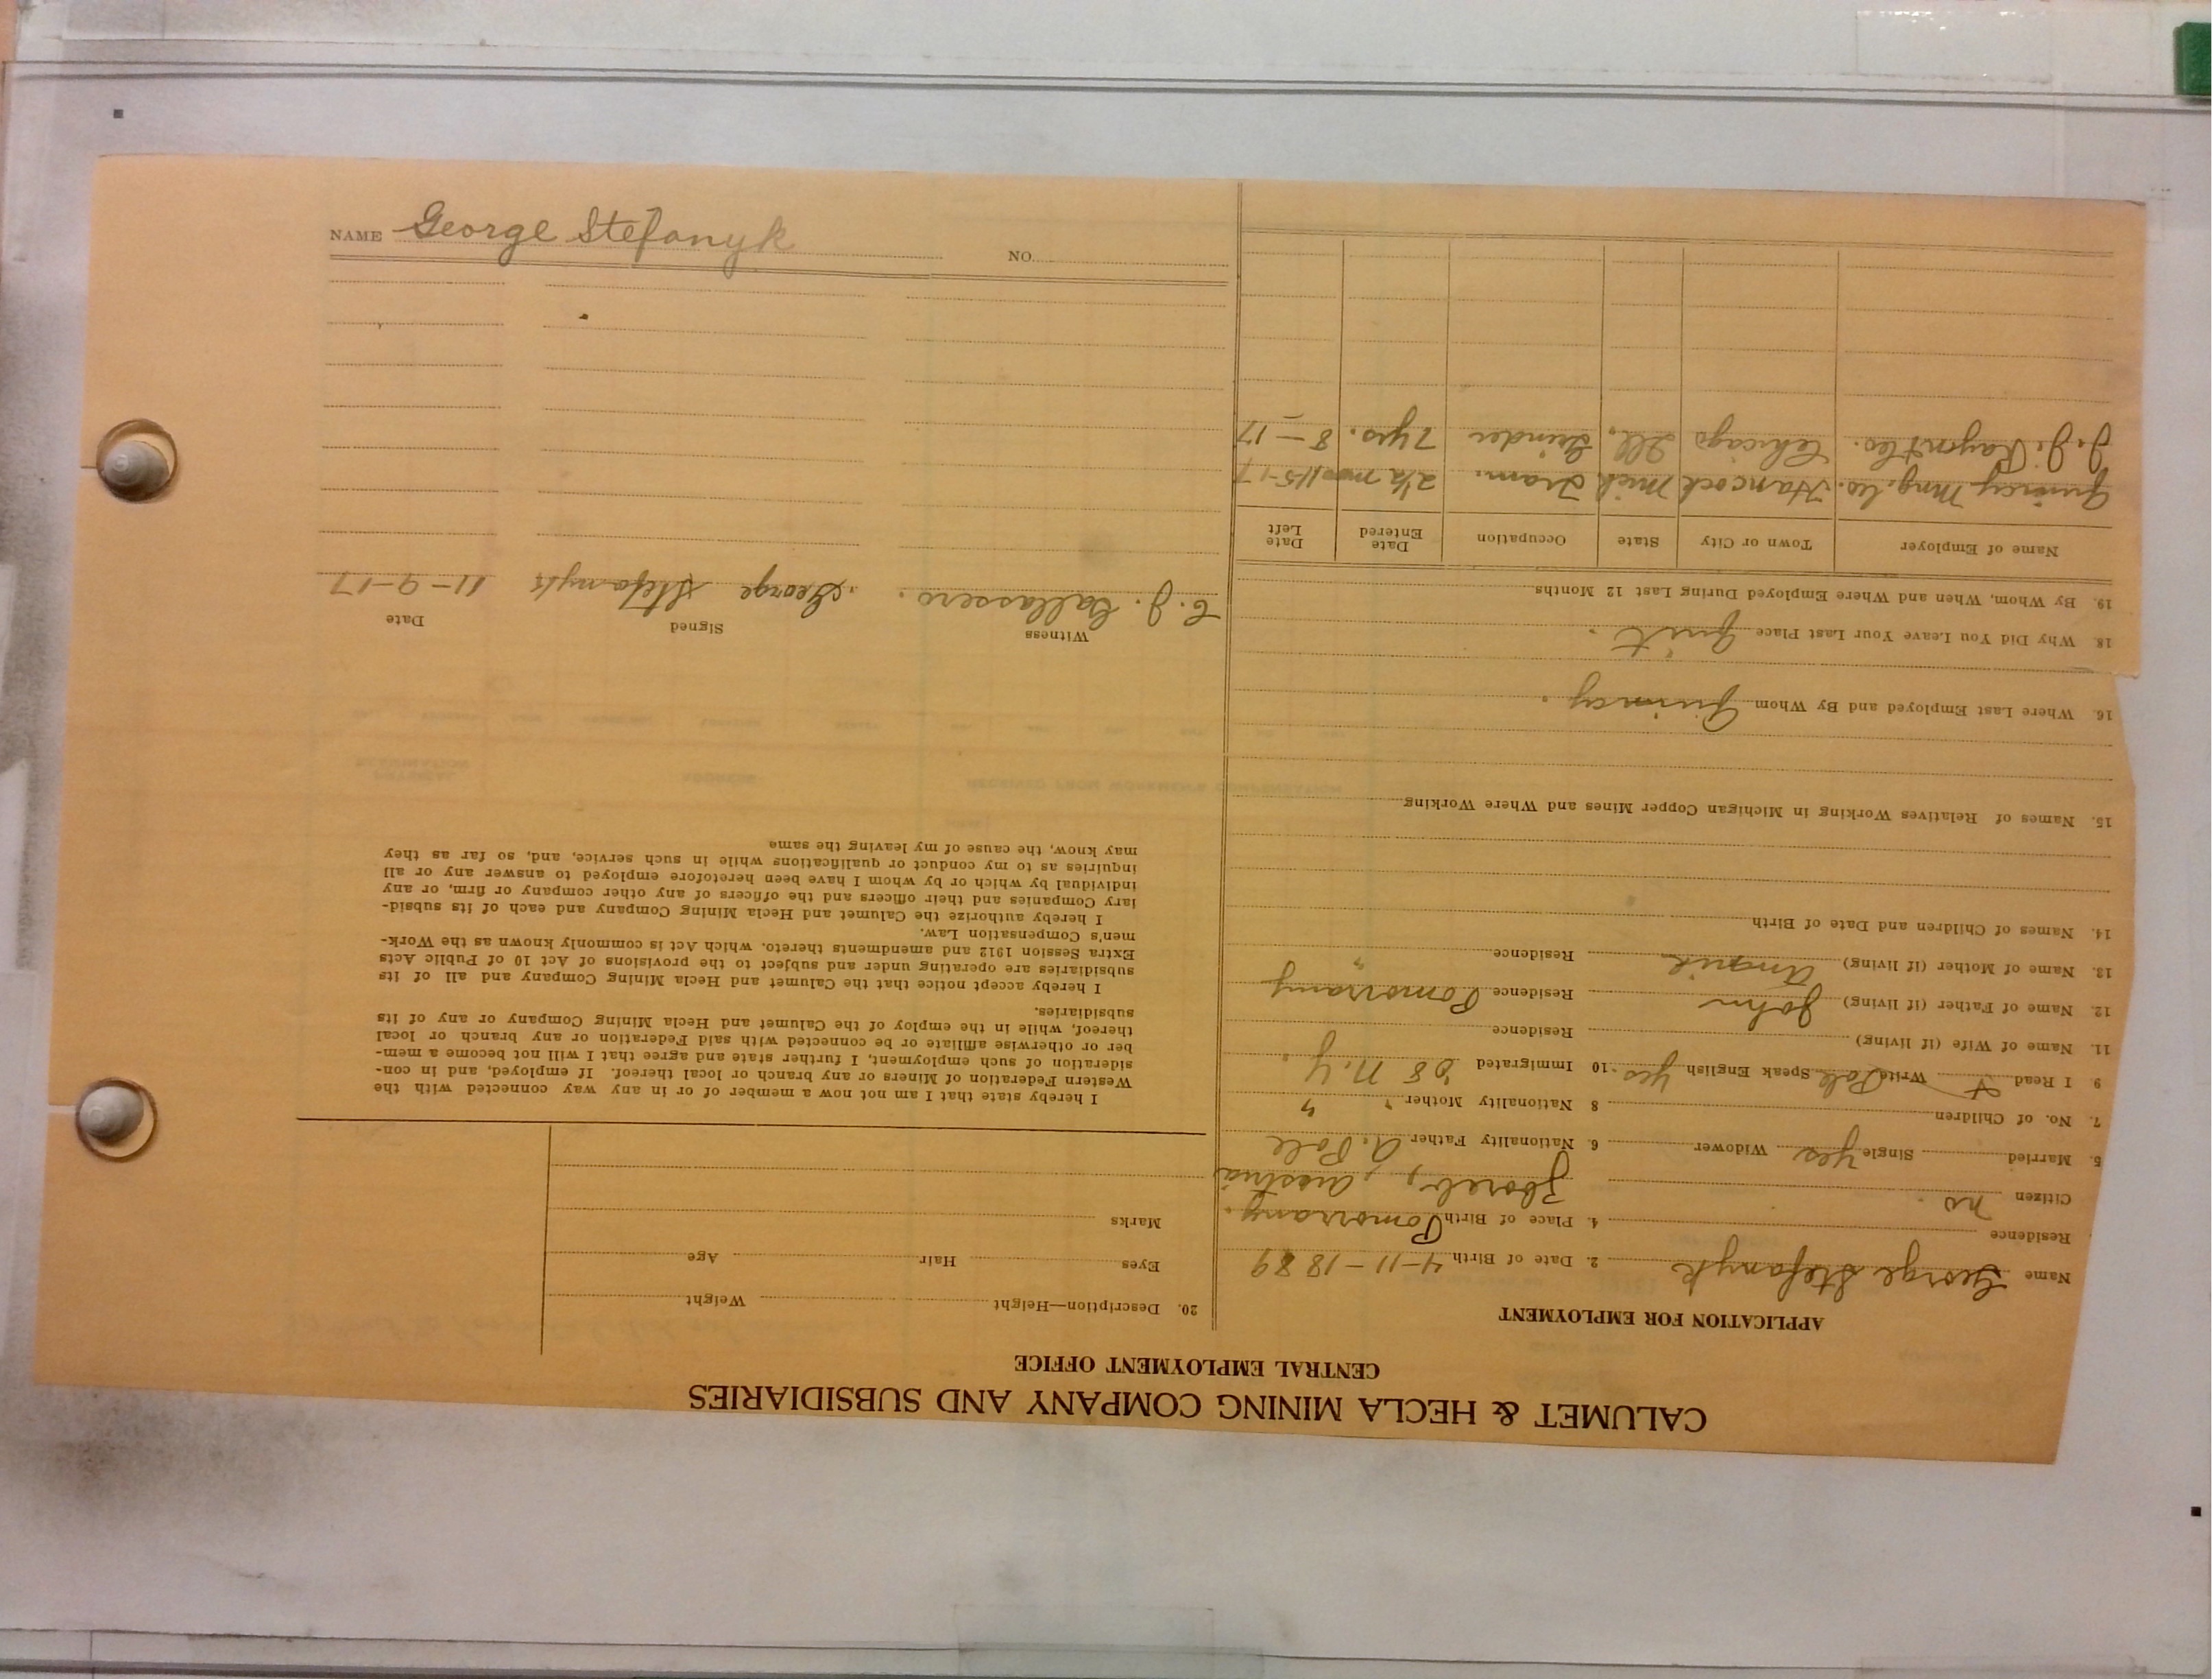 CALUMET & HECLA MINING COMPANY AND SUBSIDIARIES
CENTRAL EMPLOYMENT OFFICE
APPLICATION FOR EMPLOYMENT
Name George Stefanyk 2. Date of Birth 4-11-1889
Residence 4. Place of Birth Pomorzany.
Citizen no. Zboreb, Austria
5. Married Single yes Widower 6. Nationality Father A. Pole
7. No. of Children 8 Nationality Mother " "
9 I Read + Write Pole Speak English yes 10 Immigrated '08 N.Y.
11. Name of Wife (if living) Residence
12. Name of Father (if living) John Residence Pomorzany
13. Name of Mother (if living) Residence "
14. Names of Children and Date of Birth
15. Names of Relatives Working in Michigan Copper Mines and Where Working
16. Where Last Employed and By Whom Quincy.
18. Why Did You Leave Your Last Place Quit.
19. By Whom, When and Where Employed During Last 12 Months
Name of Employer Town or City State Occupation Date Entered Date Left
Quincy Mng. Co. Hancock Mich Tram. 2½ mo 11-5-17
J. J. Co. Chicago Ill. Grinder 7 yrs. 8 - 17
20. Description—Height Weight
Eyes Hair Age
Marks
I hereby state that I am not now a member of or in any way connected with the
Western Federation of Miners or any branch or local thereof. If employed, and in con-
sideration of such employment, I further state and agree that I will not become a mem-
ber or otherwise affiliate or be connected with said Federation or any branch or local
thereof, while in the employ of the Calumet and Hecla Mining Company or any of its
subsidiaries.
I hereby accept notice that the Calumet and Hecla Mining Company and all of its
subsidiaries are operating under and subject to the provisions of Act 10 of Public Acts
Extra Session 1912 and amendments thereto. which Act is commonly known as the Work-
men's Compensation Law.
I hereby authorize the Calumet and Hecla Mining Company and each of its subsid-
iary Companies and their officers and the officers of any other company or firm, or any
individual by which or by whom I have been heretofore employed to answer any or all
inquiries as to my conduct or qualifications while in such service, and, so far as they
may know, the cause of my leaving the same
Witness Signed Date
C. J. Gallassero. George Stefanyk 11-9-17
NAME George Stefanyk NO.